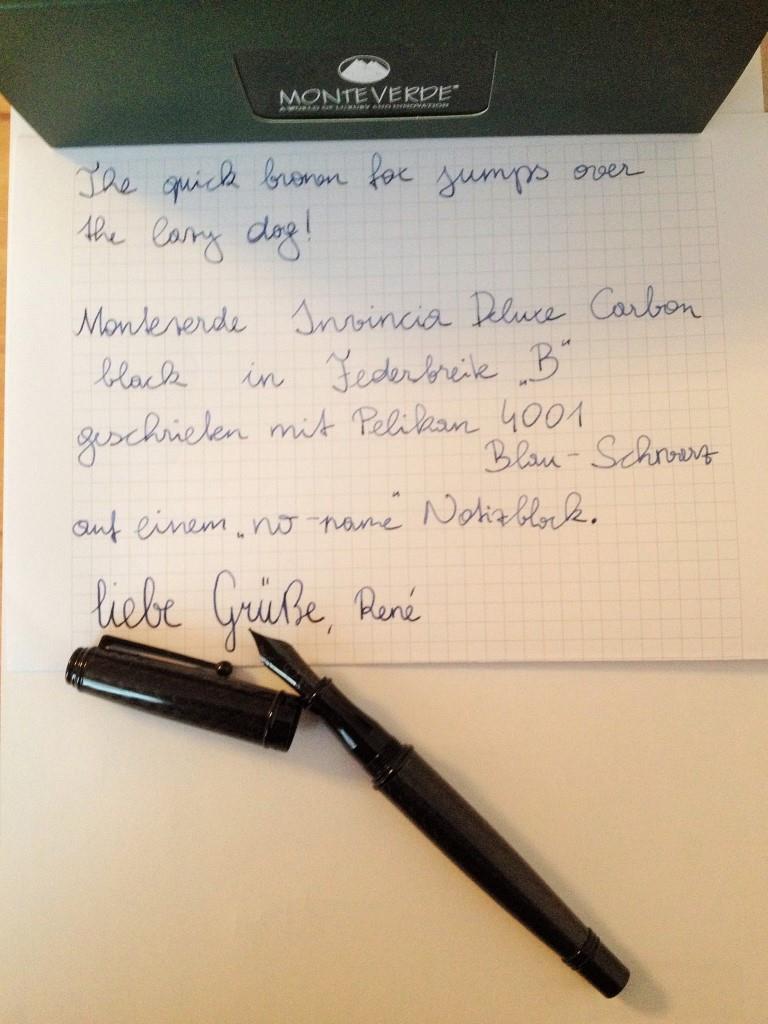 MONTEVERDE®
A WORLD OF LUXURY AND INNOVATION
The quick brown fox jumps over
the lazy dog!
Monteverde Invincia Deluxe Carbon
black in Federbreite „B“
geschrieben mit Pelikan 4001
Blau-Schwarz
auf einem „no-name“ Notizblock.
liebe Grüße, René